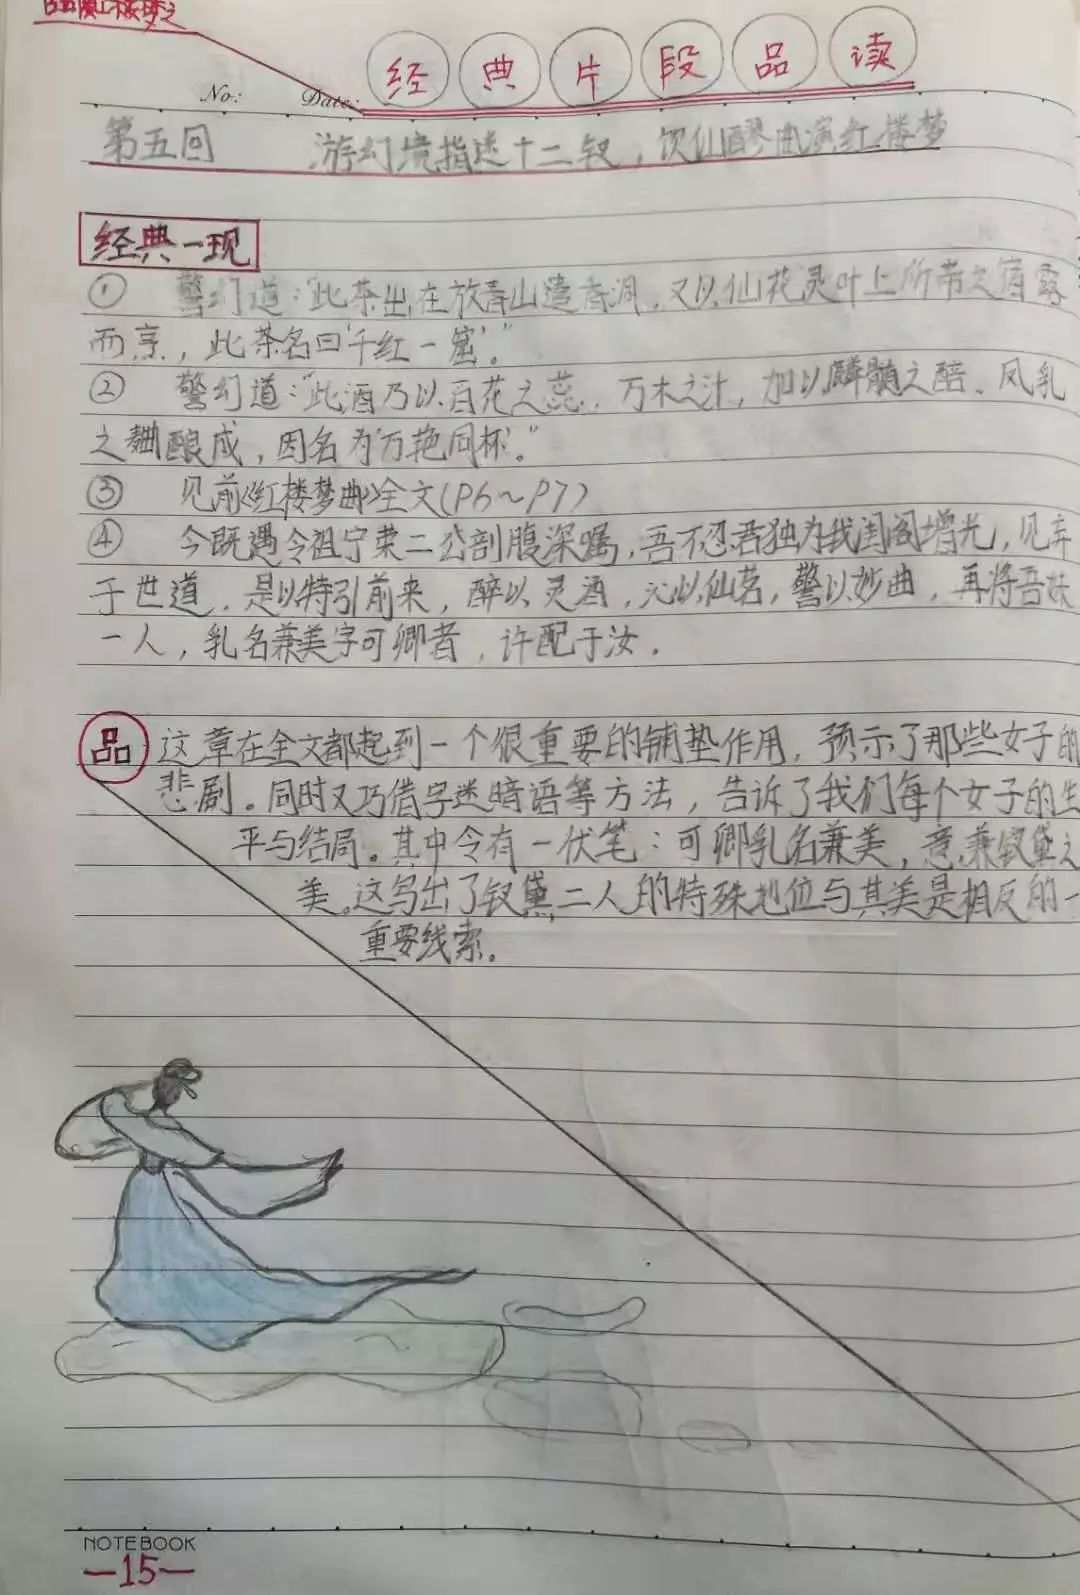 红楼梦之
经典片段品读
No:
Date:
第五回 游幻境指迷十二钗，饮仙醪曲演红楼梦
经典一现
① 警幻道：“此茶出在放春山遣香洞，又以仙花灵叶上所带之宿露
而烹，此茶名曰‘千红一窟’。”
② 警幻道：“此酒乃以百花之蕊，万木之汁，加以麟髓之醅、凤乳
之麯酿成，因名为‘万艳同杯’。”
③ 见前《红楼梦曲》全文(P6～P7)
④ 今既遇令祖宁荣二公剖腹深嘱，吾不忍君独为我闺阁增光，见弃
于世道，是以特引前来，醉以灵酒，沁以仙茗，警以妙曲，再将吾妹
一人，乳名兼美字可卿者，许配于汝。
品 这章在全文都起到一个很重要的铺垫作用，预示了那些女子的
悲剧。同时又巧借字迷暗语等方法，告诉了我们每个女子的生
平与结局。其中令有一伏笔：可卿乳名兼美，意兼钗黛之
美。这写出了钗黛二人的特殊地位与其美是相反的一
重要线索。
NOTEBOOK
—15—